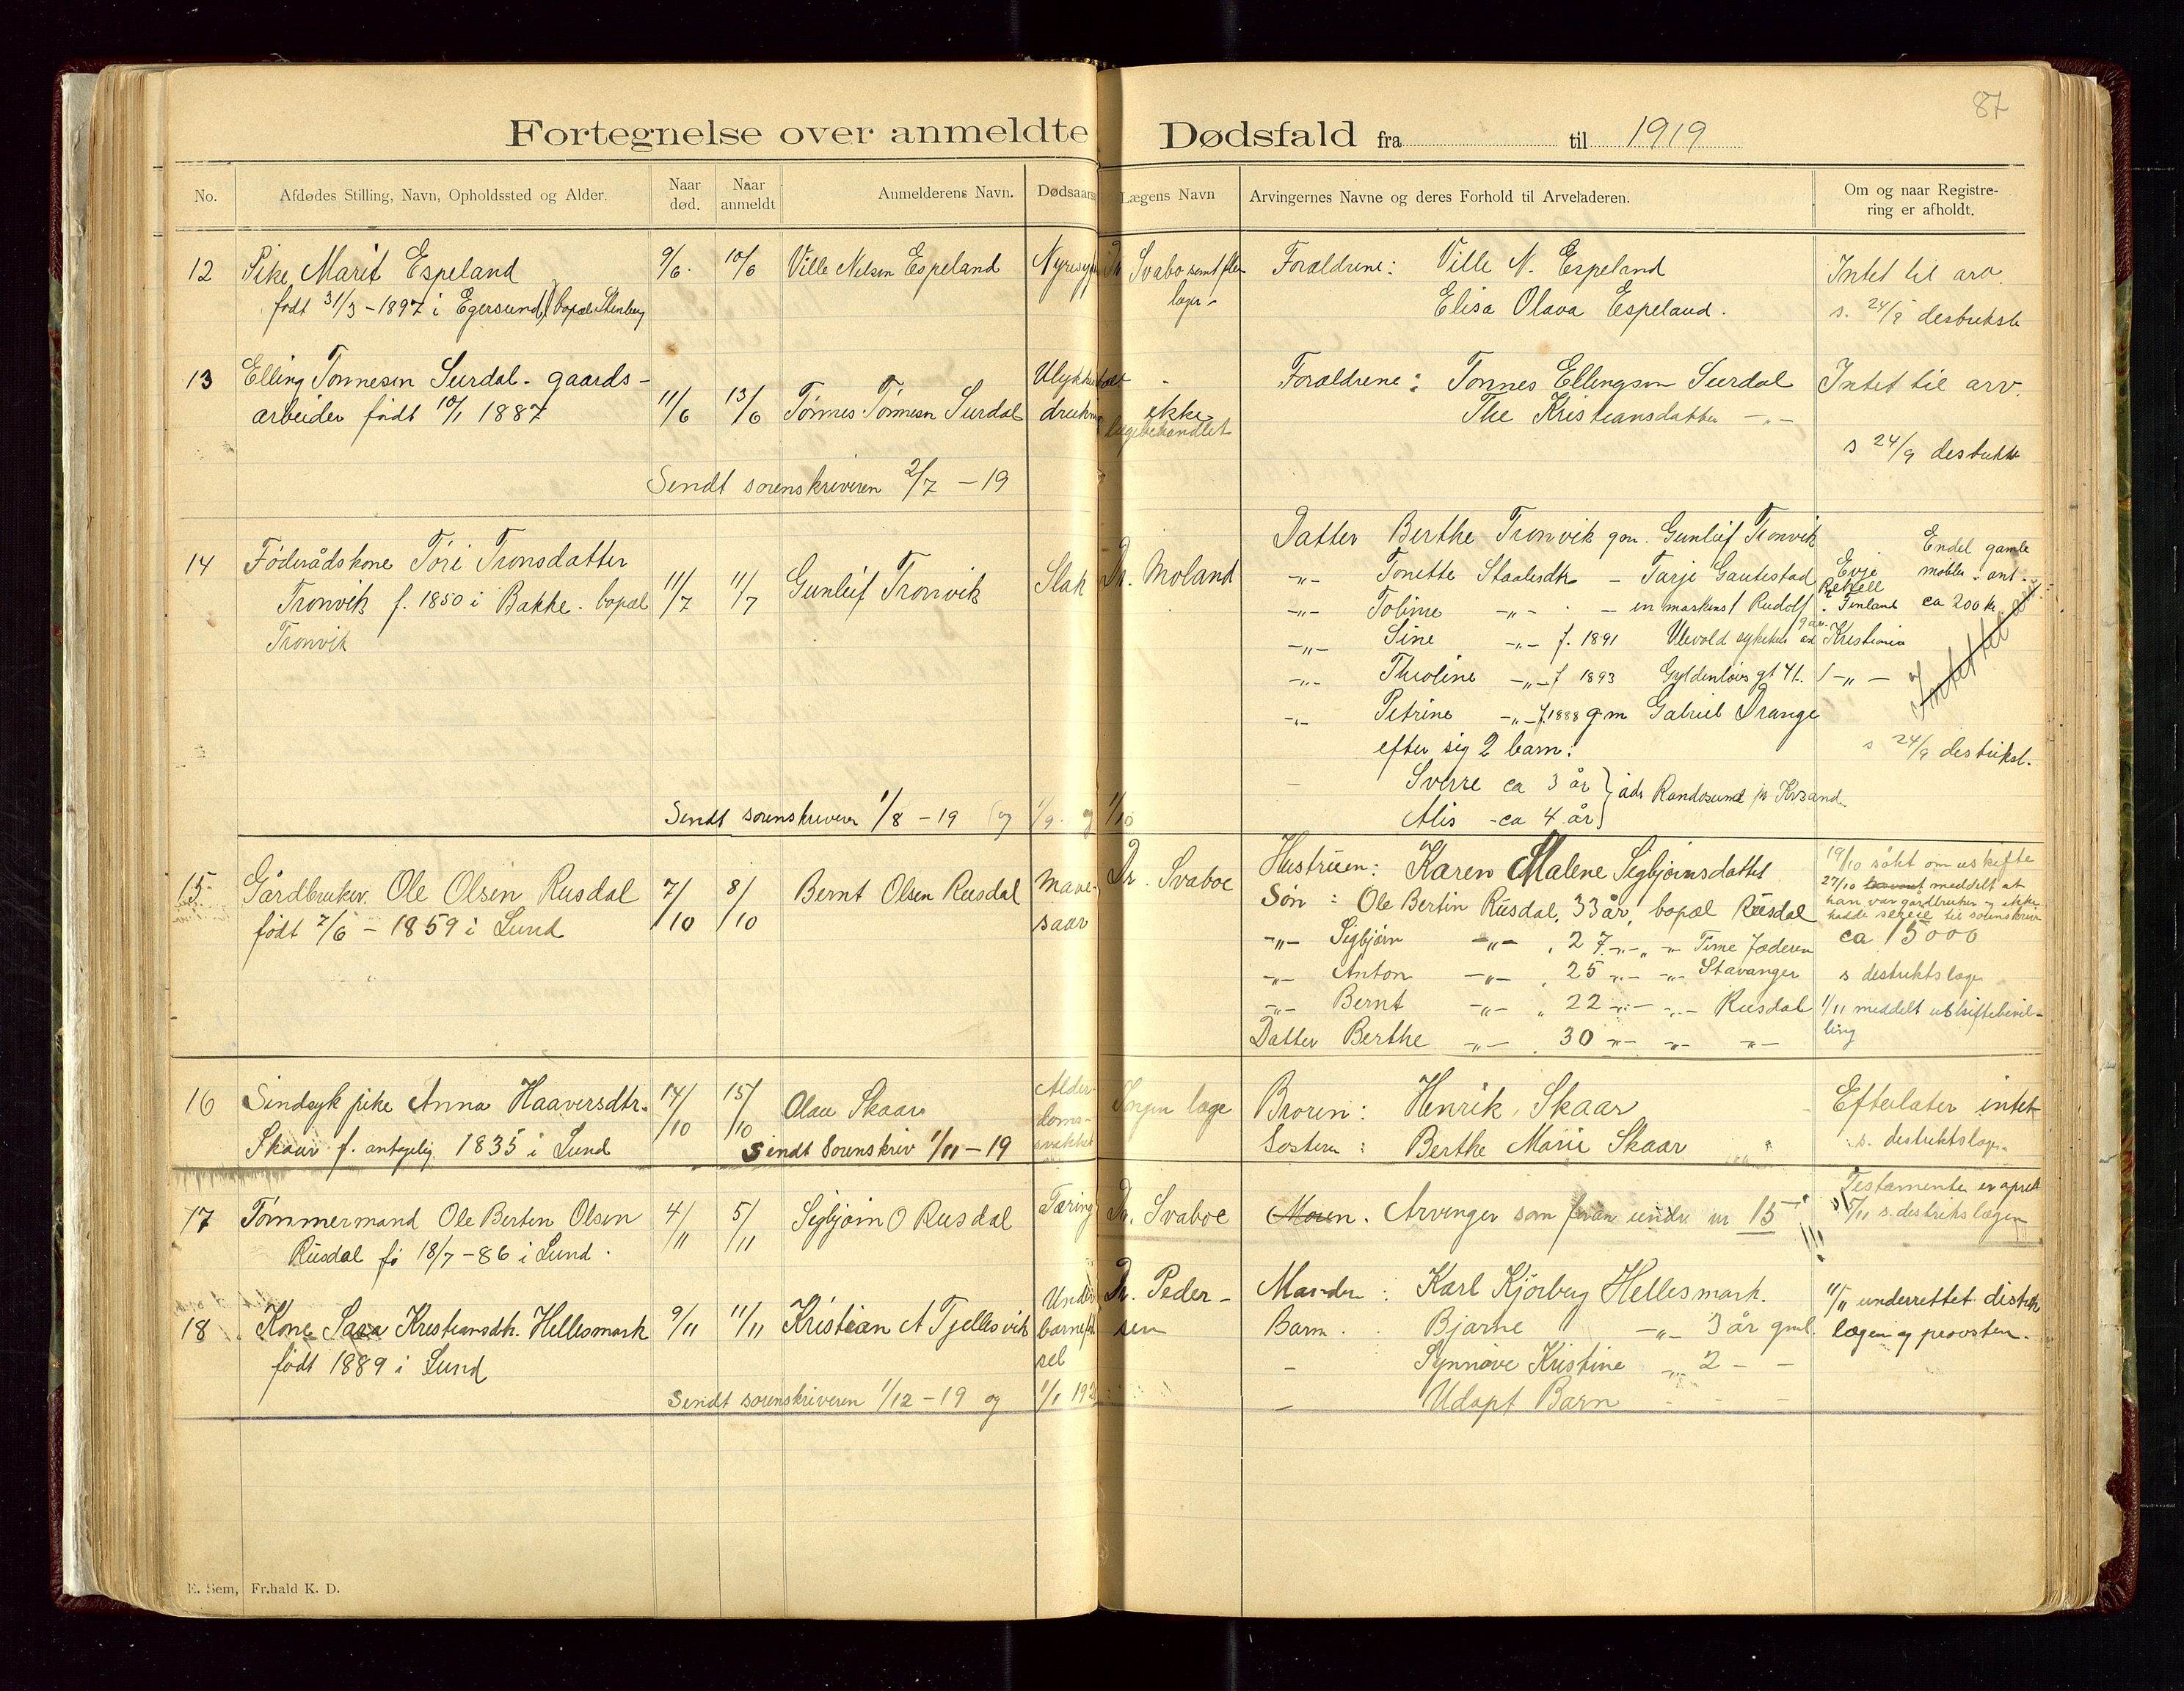 87
Fortegnelse over anmeldte Dødsfald fra til 1919
No. Afdødes Stilling, Navn, Opholdssted og Alder. Naar død. Naar anmeldt Anmelderens Navn. Dødsaars Lægens Navn Arvingernes Navne og deres Forhold til Arveladeren. Om og naar Registrering er afholdt.
12 Pike Marit Espeland 9/6. 10/6 Ville Nelsen Espeland Dr Svaboe samt flere Forældrene: Ville N. Espeland Intet til arv.
født 31/3-1897 i Egersund, bopæl Stenberg læger - Elisa Olava Espeland. s. 24/9 destriktsl
13 Elling Tonnesen Surdal - gaards- Forældrene: Tonnes Ellingsen Surdal Intet til arv.
arbeider født 10/1 1887 11/6 13/6 Tønnes Tønnesen Surdal drukn ikke lægebehandlet Kristiansdatter -"-
s 24/9 destrikts
Sendt sorenskriveren 2/7 - 19
14 Føderådskone Töri Tronsdatter 11/7 11/7 Gunleif Tronvik Slak Dr. Moland Datter Berthe Tronvik gm. Gunleif Tronvik
Tronvik f. 1850 i Bakke. bopæl
Tronvik
-"- Tonette Staalesdtr - Tarje Gautestad Evje
Endel gamle
møbler. ant.
ca 200 kr.
-"- Toline -"- - en maskinist Rudolf Finland
-"- Sine -"- f. 1891 Ulevold sykehus Kristiania
-"- Theoline -"- f 1893 Gyldenløvs gt 41. -"-
-"- Petrine -"- f. 1888 gm Gabriel Drange
Intet til arv
efter sig 2 barn:
s 24/9 destriktsl.
Sverre ca 3 år
Alis - ca 4 år
adr Randosund pr Krsand.
Sendt sorenskriveren 1/8 - 19 (og 1/9. og 1/10
15 Gårdbruker Ole Olsen Rusdal 7/10 8/10 Bernt Olsen Rusdal Mave- Dr. Svaboe Hustruen: Karen Malene Sigbjørnsdatter 19/10 søkt om uskifte
født 7/6 - 1859 i Lund saar Søn: Ole Bertin Rusdal, 33 år, bopæl Rusdal
27/10 meddelt at
han var gårdbruker og ikke
-"- Sigbjørn -"- , 27 -"- -"- Time Jæderen ca 15000
-"- Anton -"- , 25 -"- -"- Stavanger s destriktslæge
-"- Bernt -"- , 22 -"- -"- Rusdal 1/11 meddelt uskiftebevil-
ling
Datter Berthe -"- , 30 -"- -"- -"-
16 Sindsyk pike Anna Haaversdtr. 14/10 15/10 Olau Skaar Alder- Ingen læge Broren: Henrik Skaar Efterlater intet
Skaar f. antagelig 1835 i Lund doms- Søsteren: Berthe Marie Skaar s. destriktslæge
Sendt Sorenskriv 1/11-19 svækket
17 Tømmermand Ole Bertin Olsen 4/11 5/11 Sigbjørn O Rusdal Tæring Dr. Svaboe Moren. Arvinger som foran under nr 15 Testamente er opret
Rusdal fø 18/7-86 i Lund. 5/11 s. destriktslægen
18 Kone Sara Kristiansdtr. Hellesmark 9/11 11/11 Kristian A Tjellesvik Under Dr. Peder- Manden: Karl Kjørberg Hellesmark. 11/11 underrettet distrikts
født 1889 i Lund barnefød sen Barn. Bjarne -"- 3 år gml. lægen og provsten.
sel - Synnøve Kristine -"- 2 - -
- Udøpt Barn - - -
Sendt sorenskriveren 1/12 - 19 og 1/1 192
E. Sem, Fr.hald K. D.